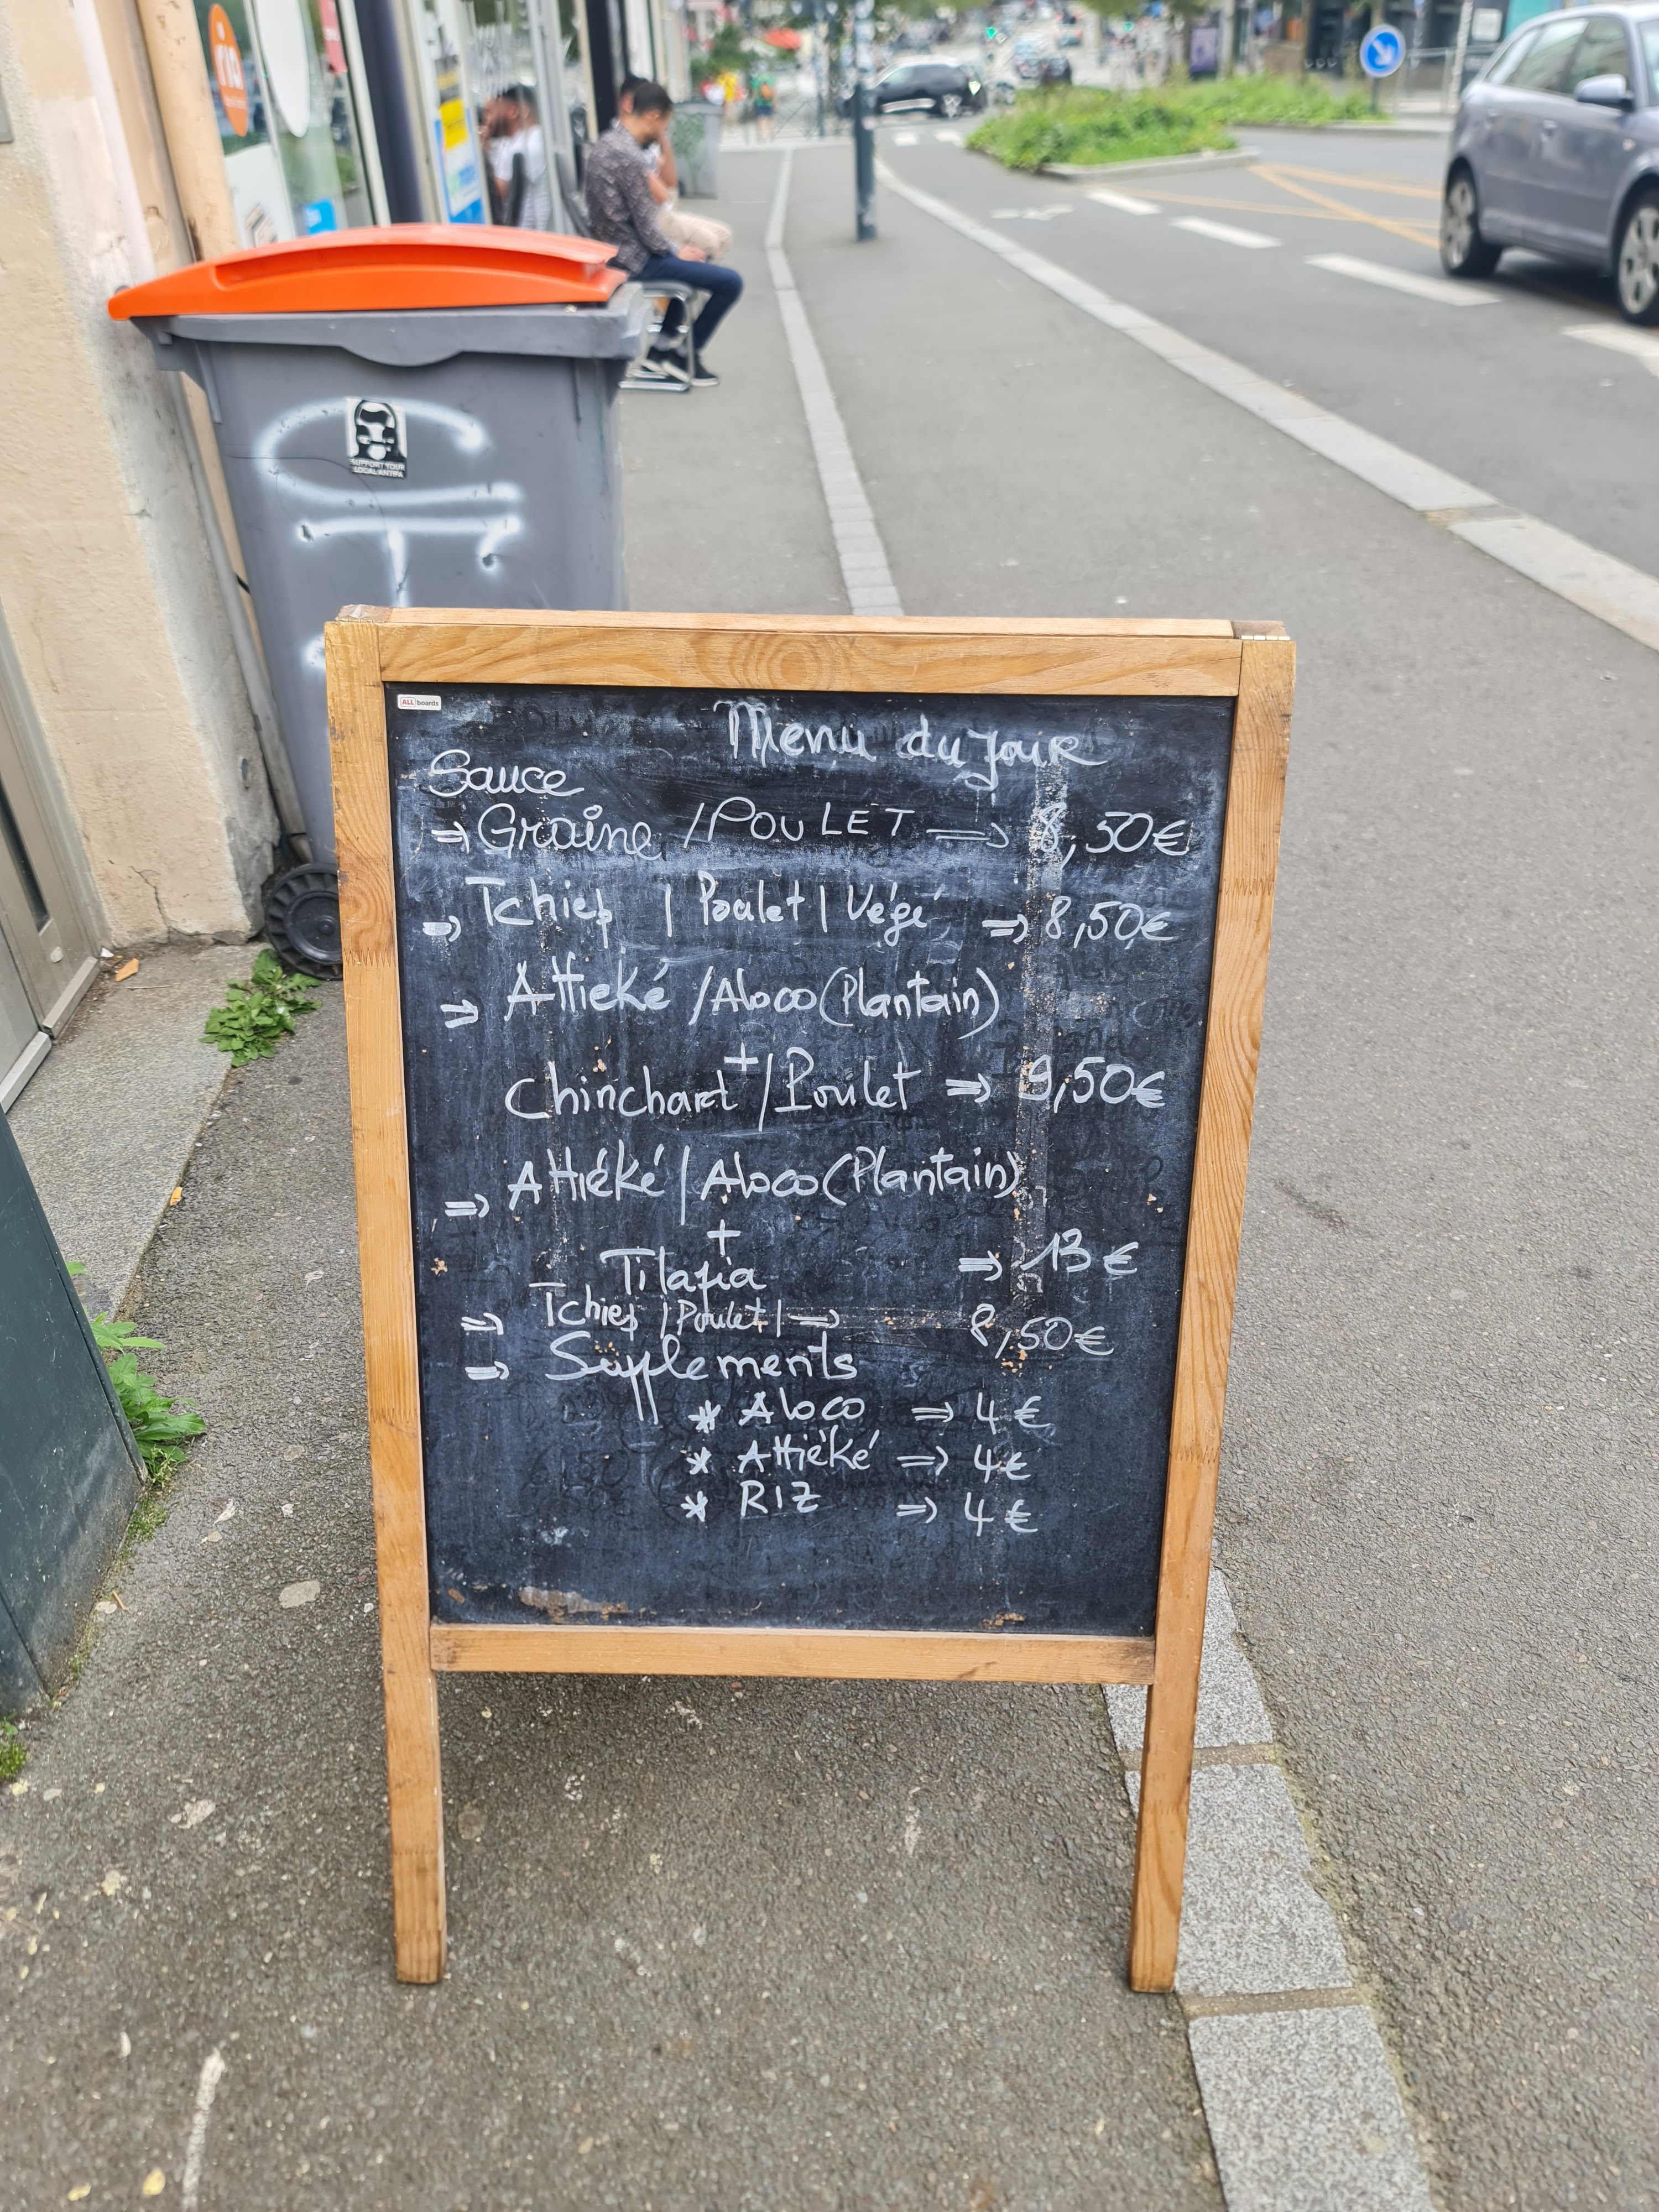 SUPPORT YOUR
LOCAL ANTIFA
ALL boards
Menu du jour
Sauce
⇒ Graine / POULET ⇒ 8,50€
⇒ Tchiep | Poulet | Végé ⇒ 8,50€
⇒ Attieké / Aloco (Plantain)
+
Chinchart / Poulet ⇒ 9,50€
⇒ Attiéké | Aloco (Plantain)
+
Tilapia ⇒ 13 €
⇒ Tchiep | Poulet | ⇒ 8,50€
⇒ Supplements
* Aloco ⇒ 4 €
* Attiéké ⇒ 4€
* RIZ ⇒ 4€